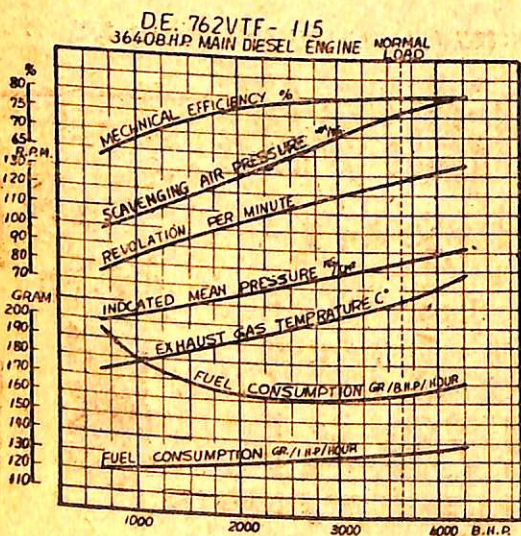 D.E. 762VTF - 115
3640B.H.P. MAIN DIESEL ENGINE
NORMAL
LOAD
%
80
75
70
65
R.P.M.
130
120
110
100
90
80
70
GRAM
200
190
180
170
160
150
140
130
120
110
MECHNICAL EFFICIENCY %
SCAVENGING AIR PRESSURE
REVOLATION PER MINUTE
INDCATED MEAN PRESSURE
EXHAUST GAS TEMPRATURE C°
FUEL CONSUMPTION GR/B.H.P/HOUR
FUEL CONSUMPTION GR./I H.P/HOUR
1000 2000 3000 4000 B.H.P.